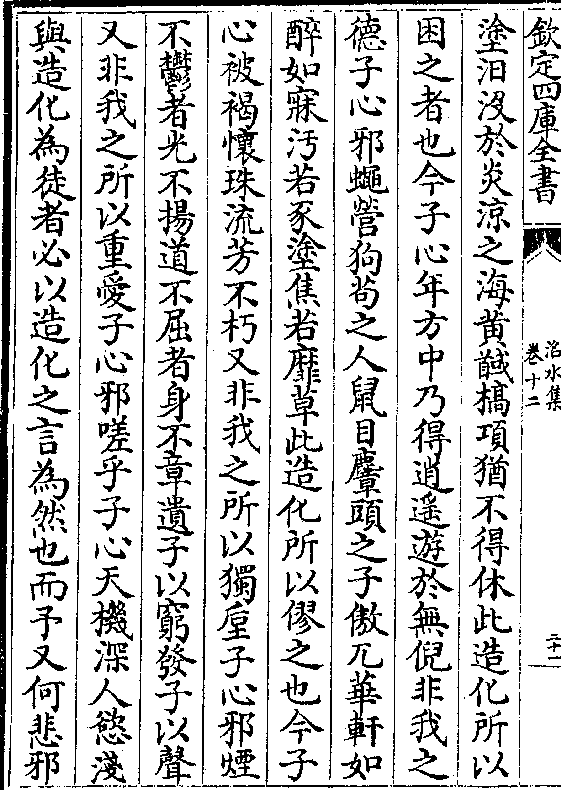 欽定四庫全書
洺水集
卷十二
二十一
塗汨沒於炎涼之海黃馘槁項猶不得休此造化所以
困之者也今子心年方中乃得逍遥遊於無倪非我之
德子心邪蠅營狗苟之人鼠目麞頭之子傲兀華軒如
醉如寐汚若豕塗焦若靡草此造化所以僇之也今子
心被褐懷珠流芳不朽又非我之所以獨㕓子心邪煙
不鬱者光不揚道不屈者身不章遺子以窮發子以聲
又非我之所以重愛子心邪嗟乎子心天機深人慾淺
與造化為徒者必以造化之言為然也而予又何悲邪